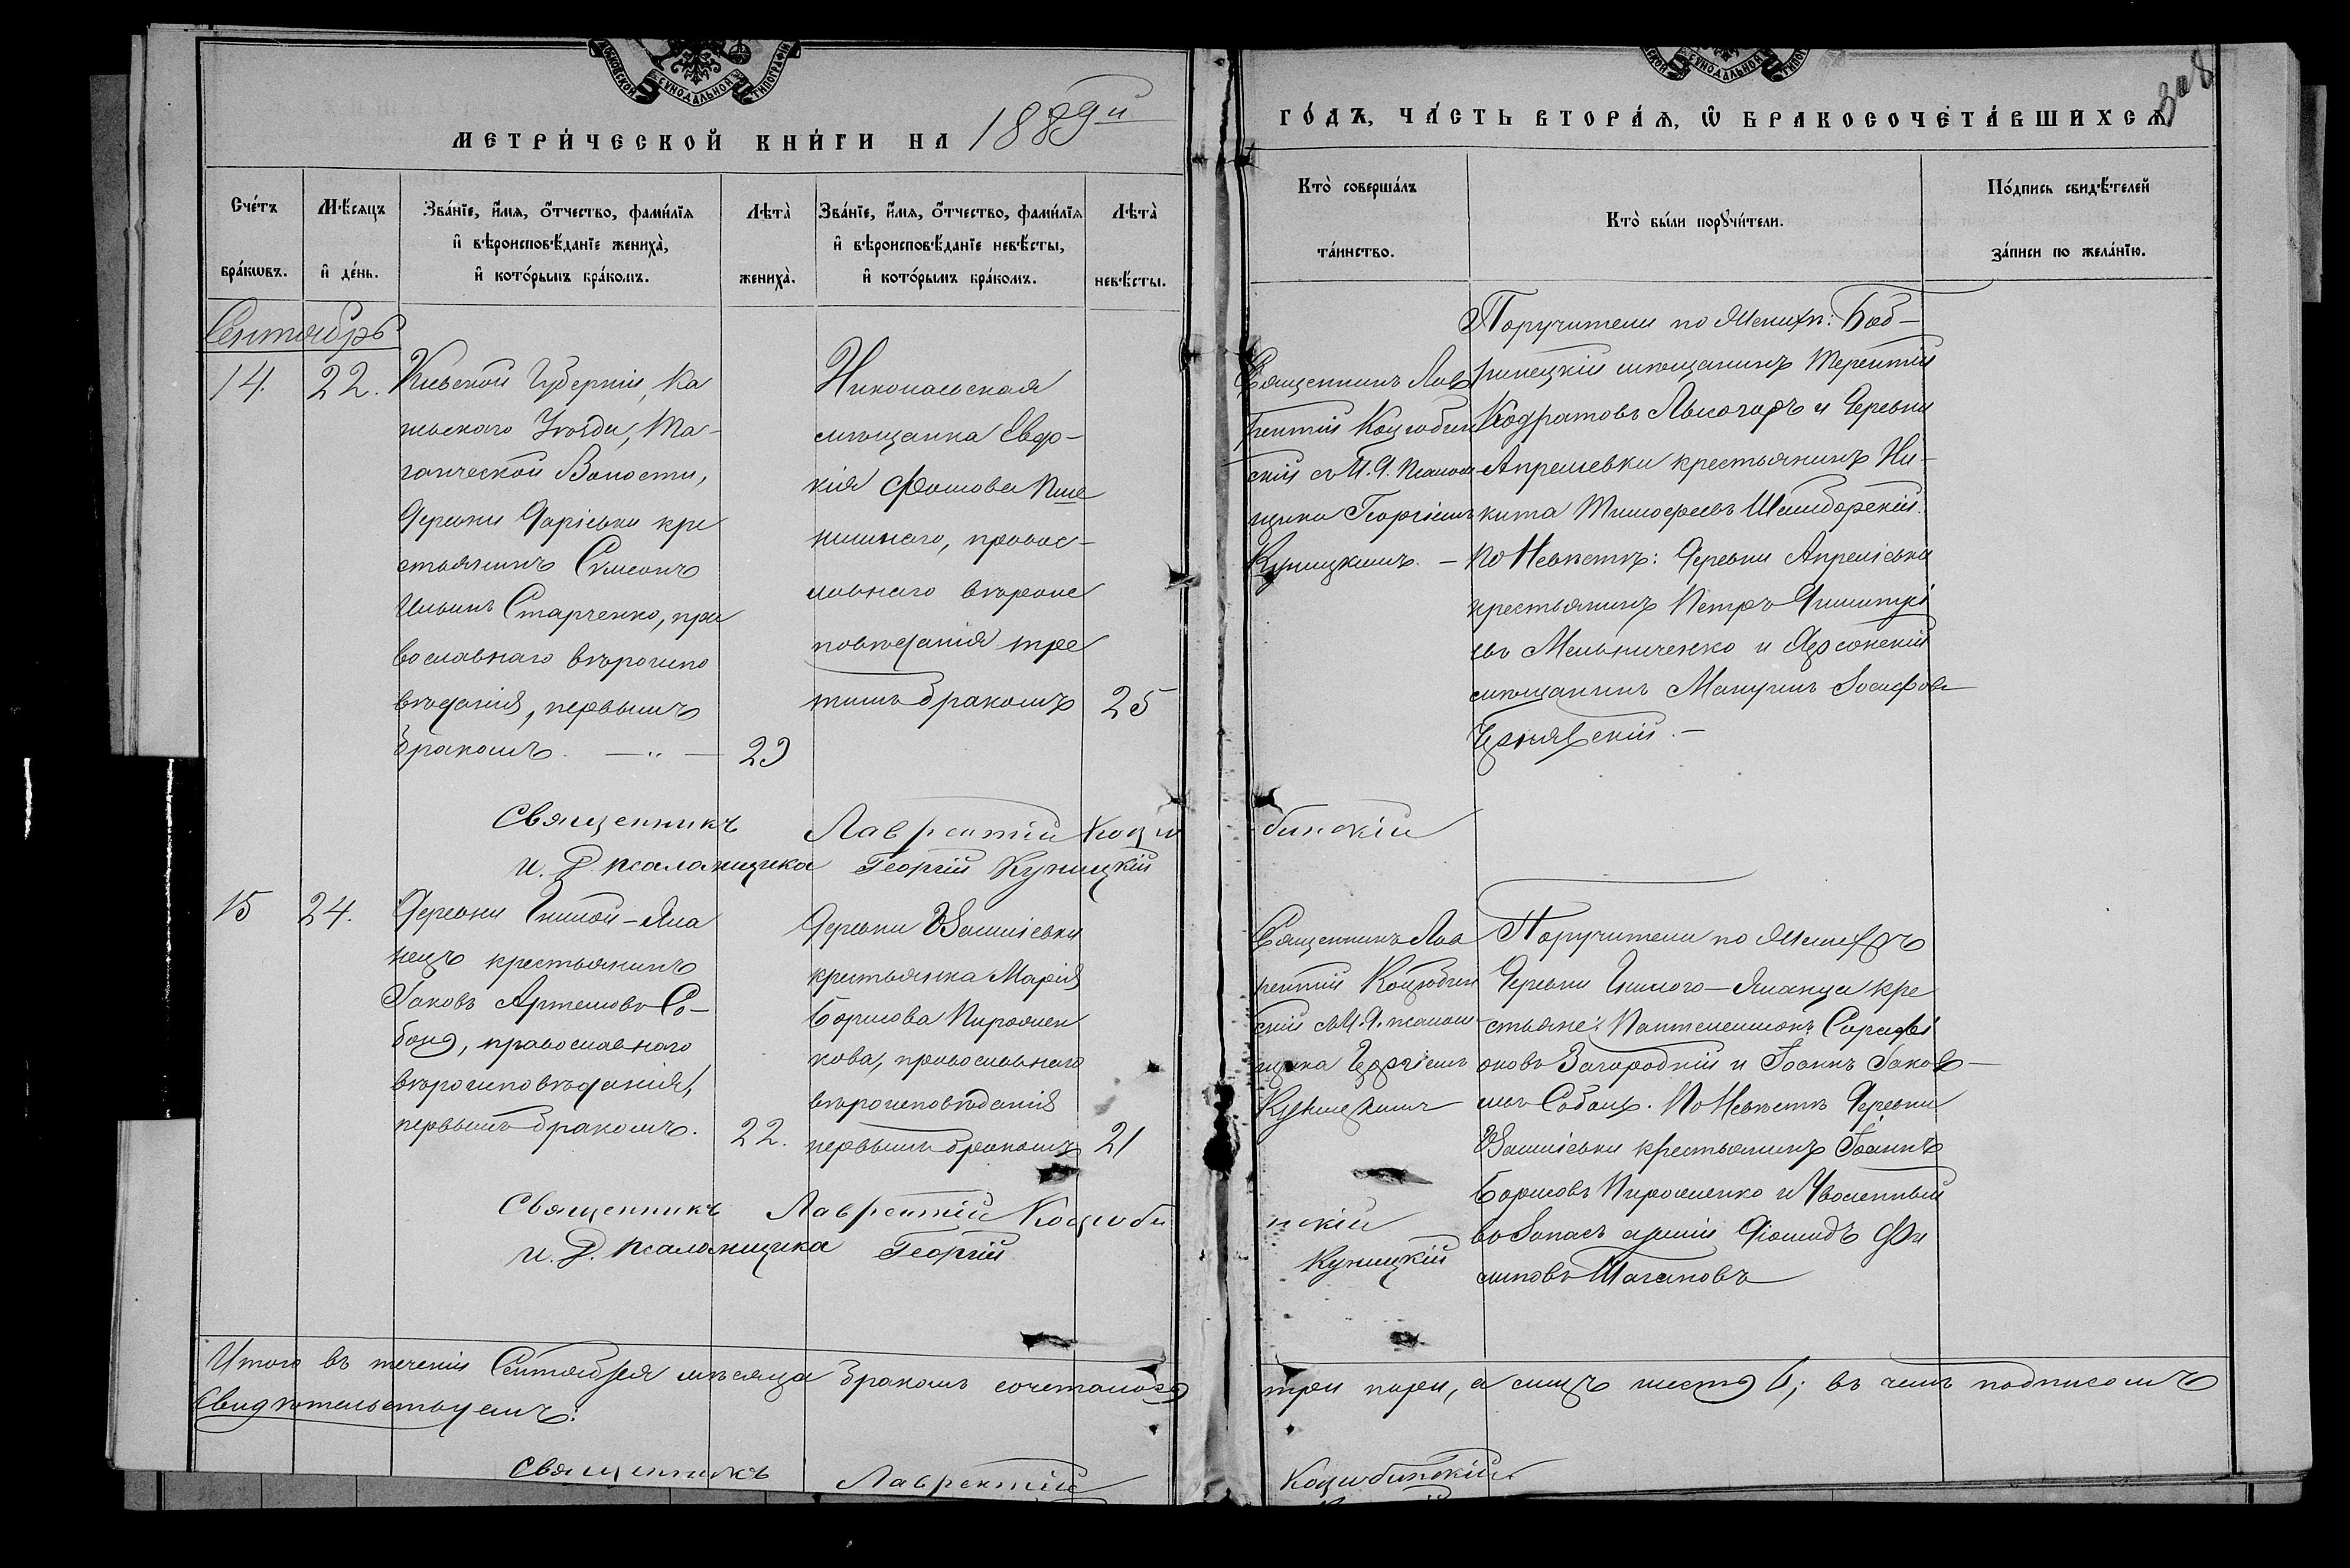 МЕТРИ́ЧЕСКОЙ КНИ́ГИ НА 1889й
ГО́ДЪ, ЧА́СТЬ ВТОРА́Ѧ, Ѡ҆ БРАКОСОЧЕТА́ВШИХСѦ
Сче́тъ бра́кѡвъ.
Мѣ́сяцъ и҆ де́нь.
Зва́нїе, и҆́мѧ, ѻ҆́тчество, фами́лїѧ
и҆ вѣроисповѣ́данїе жениха̀,
и҆ кото́рымъ бра́комъ.
Лѣта̀ жениха̀.
Зва́нїе, и҆́мѧ, ѻ҆́тчество, фами́лїѧ
и҆ вѣроисповѣ́данїе невѣ́сты,
и҆ кото́рымъ бра́комъ.
Лѣта̀ невѣ́сты.
Кто̀ соверша́лъ
та́инство.
Кто̀ бы́ли порꙋчи́тели.
По́дпись свидѣ́телей
за́писи по жела́нїю.
Сентябрь
14.
22.
Кіевской Губерніи, Ка
невскаго Уѣзда, Та-
ганческой Волости,
Деревни Даріевки кре
стьянинъ Сѵмеонъ
Ильинъ Старченко, пра
вославнаго вѣроиспо
вѣданія, первымъ
бракомъ. — „ —
29
Никопольская
мѣщанка Евдо-
кія Ѳомова Пше
ничнаго, правос-
лавнаго вѣроис
повѣданія тре
тимъ бракомъ
25
Священникъ Лав
рентій Коцюбин
скій съ И. Д. Псалом
щика Георгіемъ
Куницкимъ. —
Поручители по Женихѣ: Боб-
ринецкій мѣщанинъ Терентій
Кодратовъ Лысогоръ и Деревни
Апрелевки крестьянинъ Ни-
кита Тимофеевъ
По Невѣстѣ: Деревни Апреліевки
крестьянинъ Петръ Димитрі
евъ Мельниченко и Херсонскій
мѣщанинъ Іосифовъ
Священникъ Лаврентій Коцю
бинскій
И. Д. псаломщика Георгій Куницкій
15
24.
Деревни Гнилой-Ела
нецъ крестьянинъ
Іаковъ Артемовъ Со-
боль, православнаго
вѣроисповѣданія,
первымъ бракомъ.
22.
Деревни Василіевки
крестьянка Марія
Борисова Пирожен
кова, православнаго
вѣроисповѣданія
первымъ бракомъ
21
Священникъ Лав
рентій Коцюбин
скій съ И. Д. псалом
щика Георгіемъ
Куницкимъ
Поручители по Женихѣ
Деревни Гнилого-Еланца кре
стьяне: Пантелеимонъ
Загородній и Іоаннъ Іаков-
левъ Соболь. По Невѣстѣ Деревни
Василіевки крестьянинъ Іоаннъ
Борисовъ Пироженко и Уволенный
въ Запасъ арміи Діомидъ Фи
липовъ Шагановъ
Священникъ Лаврентій Коцюби
нскій
И. Д. псаломщика Георгій
Куницкій
Итого въ теченіи Сентября мѣсяца бракомъ сочеталось три пары, а лицъ шесть 6; въ чемъ подписомъ
Свидѣтельствуемъ:
Священникъ Лаврентій Коцюбинскій